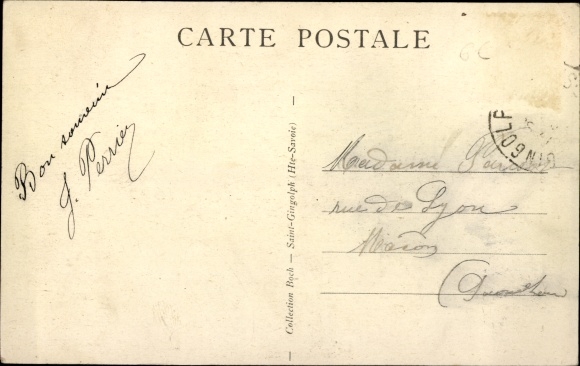 CARTE POSTALE
6C
Bon souvenir
J. Perrier
Collection Boch — Saint-Gingolph (Hte-Savoie)
Madame
rue de Lyon
Macon